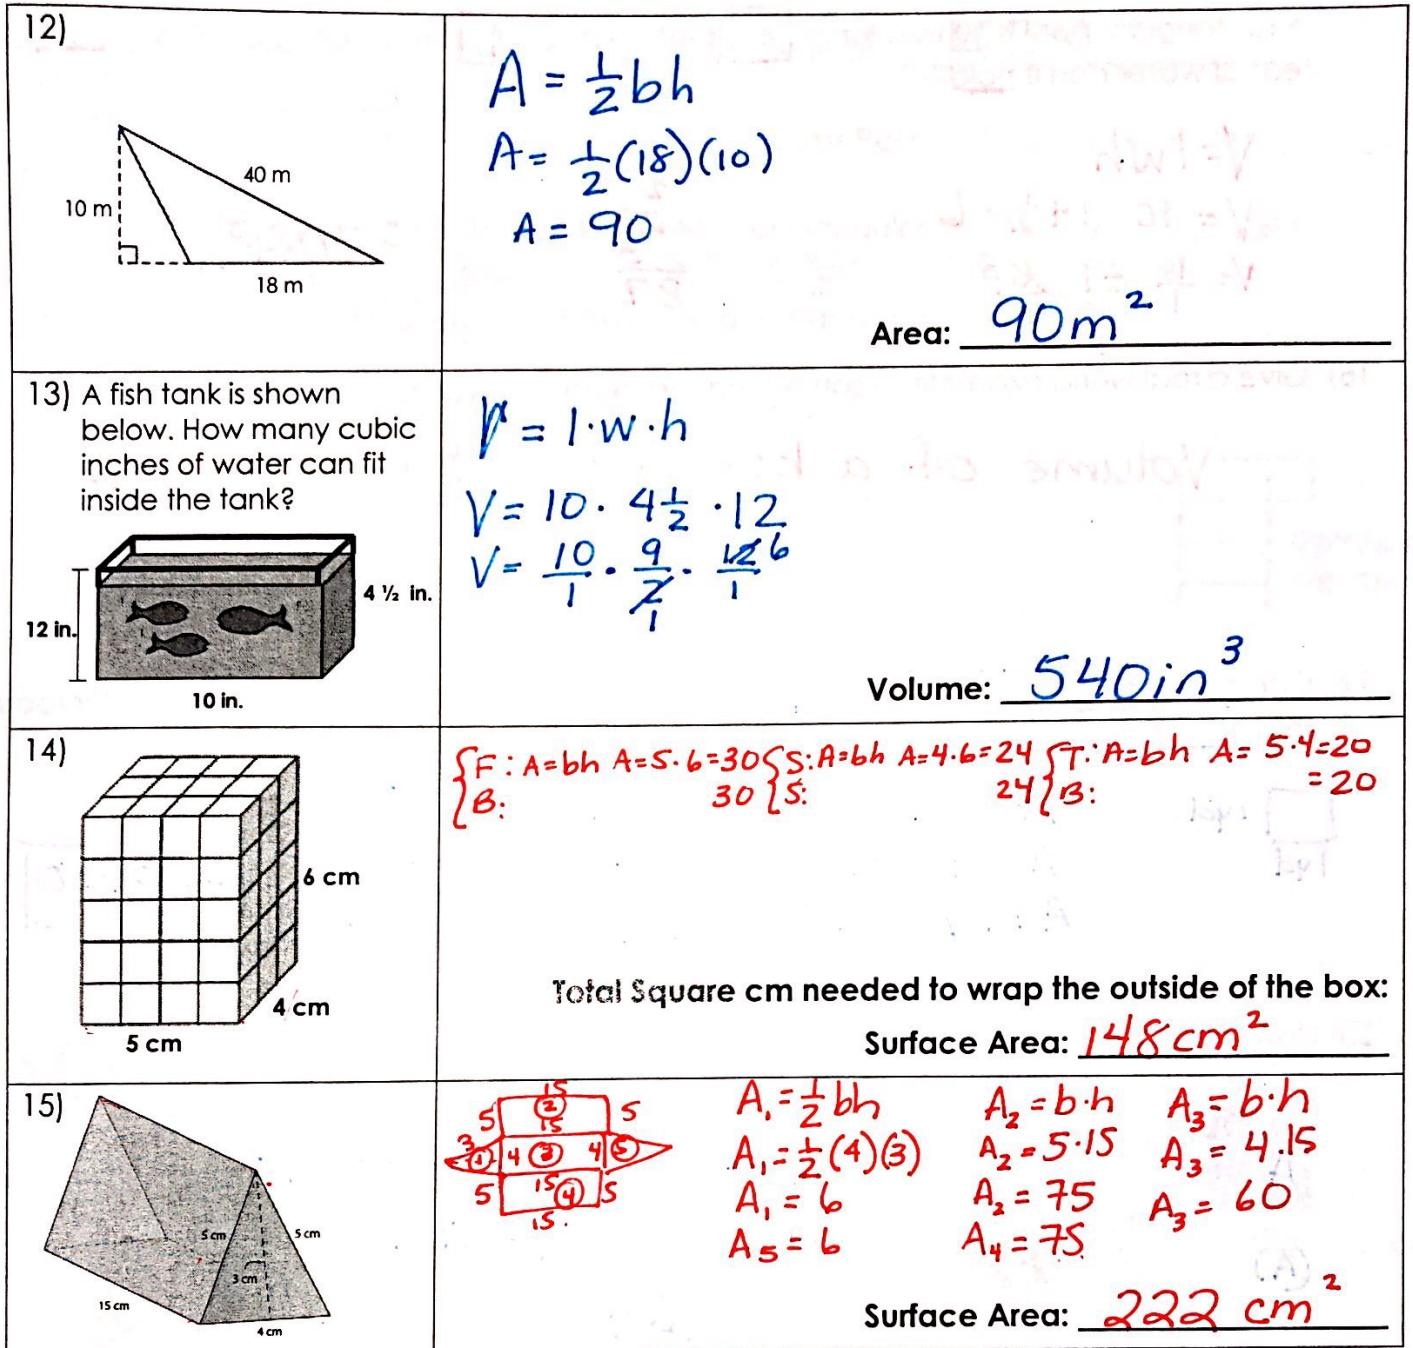 12)
40 m
10 m
18 m
A = 1/2 bh
A = 1/2 (18)(10)
A = 90
Area: 90m²
13) A fish tank is shown
below. How many cubic
inches of water can fit
inside the tank?
12 in.
4 ½ in.
10 in.
V = l·w·h
V = 10 · 4 1/2 · 12
V = 10/1 · 9/2 1 · 12/1 6
Volume: 540in³
14)
6 cm
4 cm
5 cm
F: A=bh A=5·6=30 S: A=bh A=4·6=24 T: A=bh A= 5·4=20
B: 30 S: 24 B: =20
Total Square cm needed to wrap the outside of the box:
Surface Area: 148cm²
15)
5 cm
5 cm
3 cm
15 cm
4 cm
15
5 2 5
15
3 1 4 3 4 5
5 15 4 5
15
A₁ = 1/2 bh
A₁ = 1/2 (4)(3)
A₁ = 6
A₅ = 6
A₂ = b·h
A₂ = 5·15
A₂ = 75
A₄ = 75
A₃ = b·h
A₃ = 4.15
A₃ = 60
Surface Area: 222 cm²